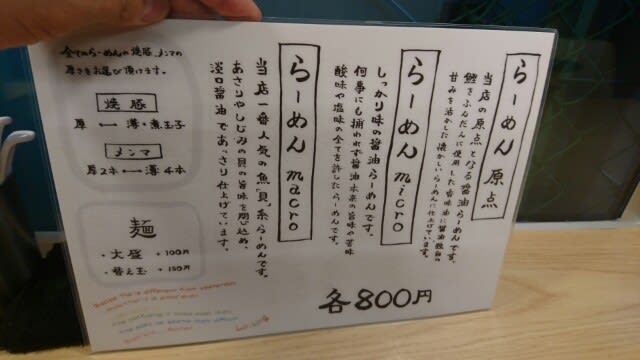 らーめん 原点
当店の原点となる醤油らーめんです。
鰹をふんだんに使用した香味油に醤油独自の
甘みを活かした懐かしいらーめんに仕上げています。
らーめん micro
しっかり味の醤油らーめんです。
何事にも捕われず醤油本来の旨味や苦味
酸味や塩味の全てを許したらーめんです。
らーめん macro
当店一番人気の魚貝系らーめんです。
あさりやしじみの貝の旨味を閉じ込め、
淡口醤油であっさり仕上げています。
各800円
全てのらーめんの焼豚、メンマの
厚さをお選び頂けます。
焼豚
厚 ↔ 薄+煮玉子
メンマ
厚2本 ↔ 薄4本
麺
・大盛 +100円
・替え玉 +150円